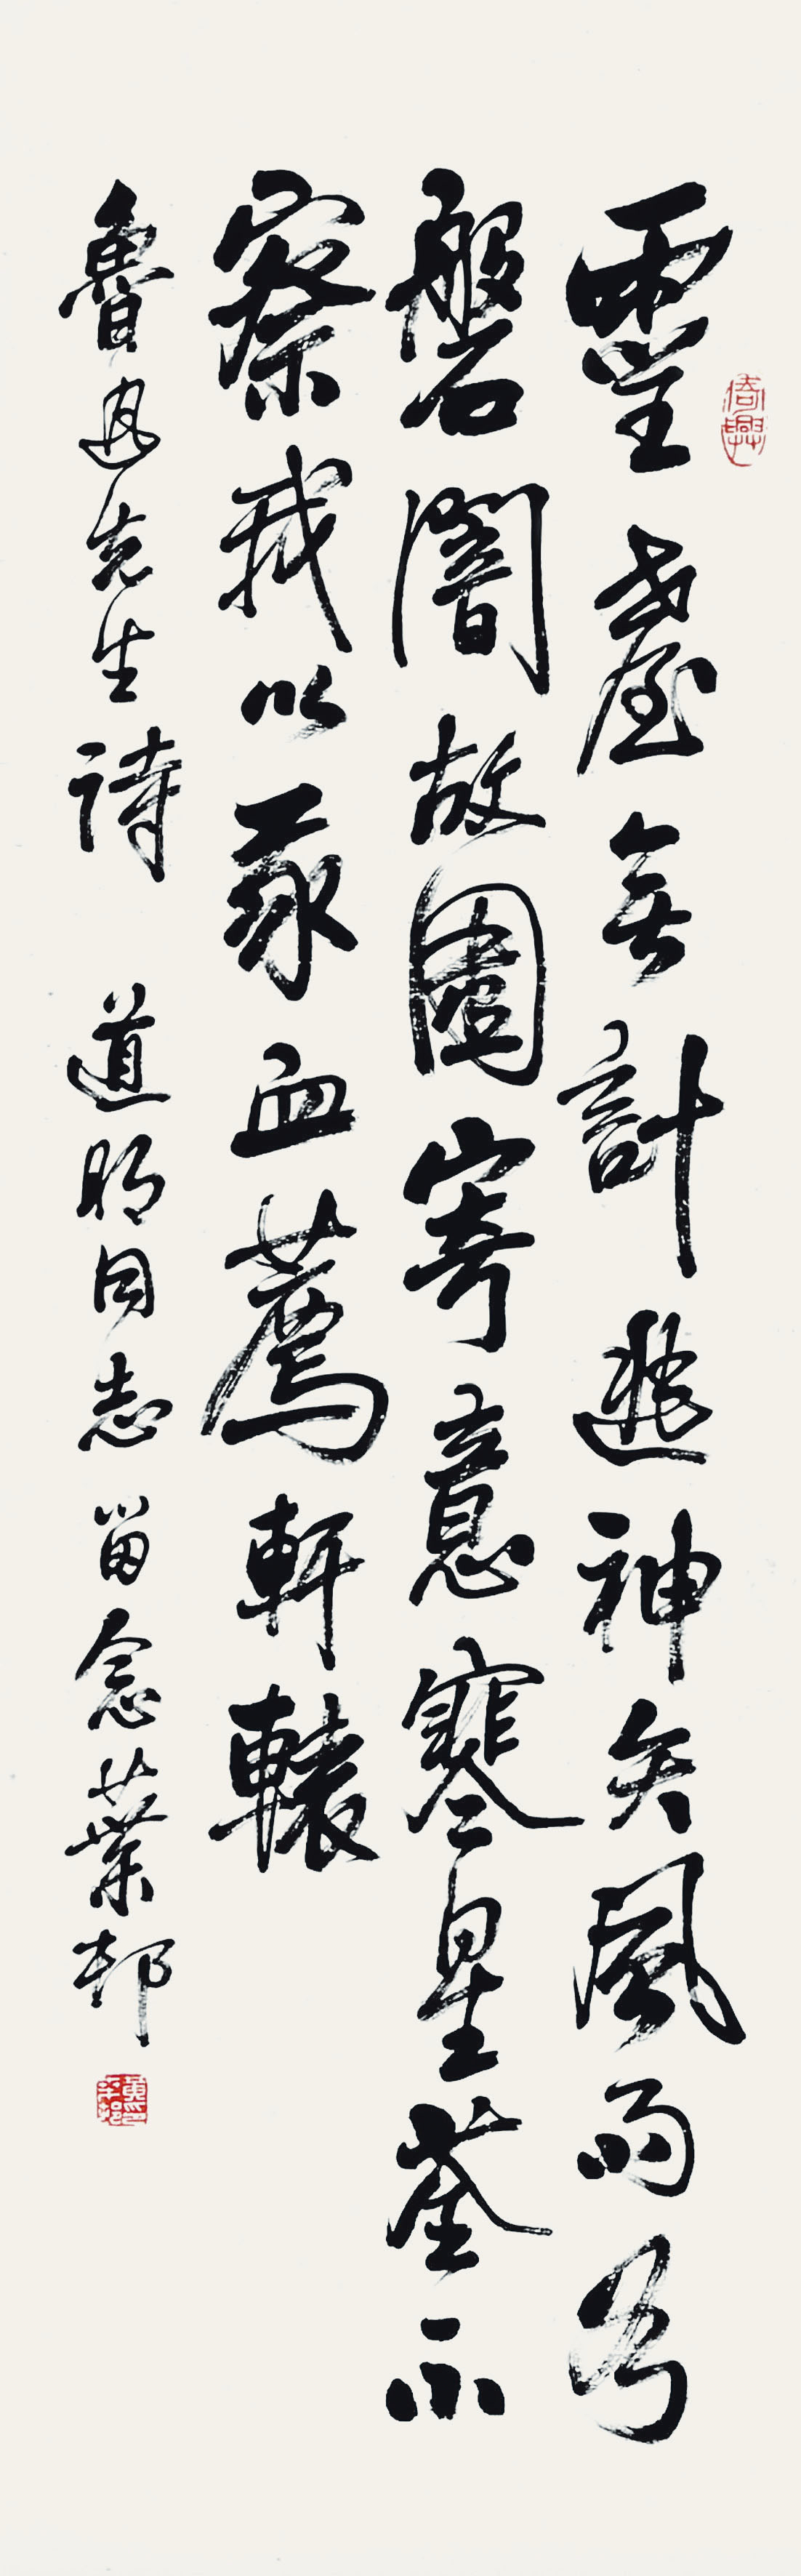 靈臺無計逃神矢風雨如
磐闇故園寄意寒星荃不
察我以我血薦軒轅
魯迅先生詩 道明同志留念 葉邨